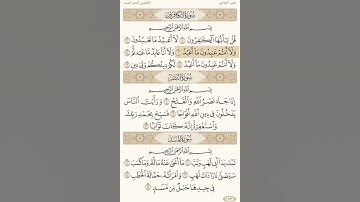 الجزء الثلاثون
سُورَةُ الكَافِرُونَ
بِسْمِ ٱللَّهِ ٱلرَّحْمَٰنِ ٱلرَّحِيمِ
قُلْ يَٰٓأَيُّهَا ٱلْكَٰفِرُونَ ١ لَآ أَعْبُدُ مَا تَعْبُدُونَ ٢
وَلَآ أَنتُمْ عَٰبِدُونَ مَآ أَعْبُدُ ٣ وَلَآ أَنَا۠ عَابِدٌ مَّا عَبَدتُّمْ ٤
وَلَآ أَنتُمْ عَٰبِدُونَ مَآ أَعْبُدُ ٥ لَكُمْ دِينُكُمْ وَلِىَ دِينِ ٦
سُورَةُ النَّصْرِ
بِسْمِ ٱللَّهِ ٱلرَّحْمَٰنِ ٱلرَّحِيمِ
إِذَا جَآءَ نَصْرُ ٱللَّهِ وَٱلْفَتْحُ ١ وَرَأَيْتَ ٱلنَّاسَ
يَدْخُلُونَ فِى دِينِ ٱللَّهِ أَفْوَاجًا ٢ فَسَبِّحْ بِحَمْدِ رَبِّكَ
وَٱسْتَغْفِرْهُ إِنَّهُۥ كَانَ تَوَّابًۢا ٣
سُورَةُ المَسَدِ
بِسْمِ ٱللَّهِ ٱلرَّحْمَٰنِ ٱلرَّحِيمِ
تَبَّتْ يَدَآ أَبِى لَهَبٍ وَتَبَّ ١ مَآ أَغْنَىٰ عَنْهُ مَالُهُۥ وَمَا كَسَبَ ٢
سَيَصْلَىٰ نَارًا ذَاتَ لَهَبٍ ٣ وَٱمْرَأَتُهُۥ حَمَّالَةَ ٱلْحَطَبِ ٤
فِى جِيدِهَا حَبْلٌ مِّن مَّسَدٍۭ ٥